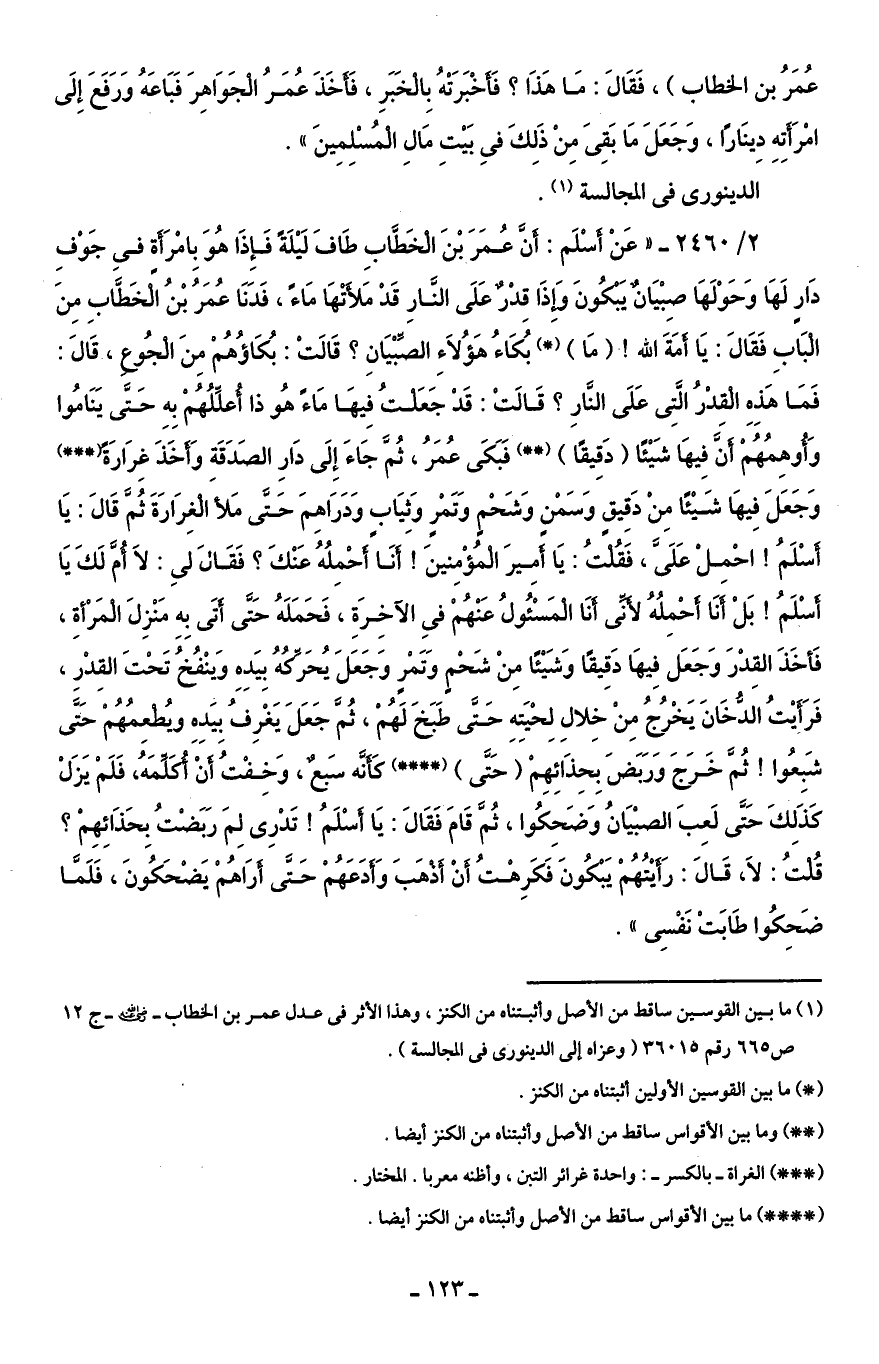 عُمَرُ بن الخطاب ) ، فَقَالَ : مَا هَذَا ؟ فَأَخْبَرَتْهُ بِالْخَبَرِ ، فَأَخَذَ عُمَرُ الْجَوَاهِرَ فَبَاعَهُ وَرَفَعَ إِلَى
امْرَأَتِهِ دِينَارًا ، وَجَعَلَ مَا بَقِىَ مِنْ ذَلِكَ فِى بَيْتِ مَالِ الْمُسْلِمِينَ » .
الدينورى فى المجالسة (١) .
٢/ ٢٤٦٠ ـ « عَنْ أَسْلَم : أَنَّ عُمَرَ بْنَ الْخَطَّابِ طَافَ لَيْلَةً فَإِذَا هُوَ بِامْرَأَةٍ فِى جَوْفِ
دَارٍ لَهَا وَحَوْلَهَا صِبْيَانٌ يَبْكُونَ وَإِذَا قِدْرٌ عَلَى النَّارِ قَدْ مَلأَتْهَا مَاءً ، فَدَنَا عُمَرُ بْنُ الْخَطَّابِ مِنَ
الْبَابِ فَقَالَ : يَا أَمَةَ الله ! ( مَا ) (*) بُكَاءُ هَؤُلاَءِ الصِّبْيَانِ ؟ قَالَتْ : بُكَاؤُهُمْ مِنَ الْجُوعِ ، قَالَ :
فَمَا هَذِهِ الْقِدْرُ الَّتِى عَلَى النَّارِ ؟ قَالَتْ : قَدْ جَعَلْتُ فِيهَا مَاءً هُو ذا أُعَلِّلُهُمْ بِهِ حَتَّى يَنَامُوا
وَأُوهِمُهُمْ أَنَّ فِيهَا شَيْئًا ( دَقِيقًا ) (**) فَبَكَى عُمَرُ ، ثُمَّ جَاءَ إِلَى دَارِ الصَدَقَةِ وَأَخَذَ غِرَارَةً (***)
وَجَعَلَ فِيهَا شَيْئًا مِنْ دَقِيقٍ وَسَمْنٍ وَشَحْمٍ وَتَمْرٍ وَثِيَابٍ وَدَرَاهِمَ حَتَّى مَلأ الْغِرَارَةَ ثُمَّ قَالَ : يَا
أَسْلَمُ ! احْمِلْ عَلَىَّ ، فَقُلْتُ : يَا أَمِيرَ الْمُؤْمِنِينَ ! أَنَا أَحْمِلُهُ عَنْكَ ؟ فَقَالَ لِى : لاَ أُمَّ لَكَ يَا
أَسْلَمُ ! بَلْ أَنَا أَحْمِلُهُ لأَنِّى أَنَا الْمَسْئُولُ عَنْهُمْ فِى الآخِرَةِ ، فَحَمَلَهُ حَتَّى أَتَى بِهِ مَنْزِلَ الْمَرْأَةِ ،
فَأَخَذَ الْقِدْرَ وَجَعَلَ فِيهَا دَقِيقًا وَشَيْئًا مِنْ شَحْمٍ وَتَمْرٍ وَجَعَلَ يُحَرِّكُهُ بِيَدِهِ وَيَنْفُخُ تَحْتَ الْقِدْرِ ،
فَرَأَيْتُ الدُّخَانَ يَخْرُجُ مِنْ خِلالِ لِحْيَتِهِ حَتَّى طَبَخَ لَهُمْ ، ثُمَّ جَعَلَ يَغْرِفُ بِيَدِهِ ويُطْعِمُهُمْ حَتَّى
شَبِعُوا ! ثُمَّ خَرَجَ وَرَبَضَ بِحِذَائِهِمْ ( حَتَّى ) (****) كَأَنَّه سَبعٌ، وَخِفْتُ أَنْ أُكَلِّمَهُ، فَلَمْ يَزَلْ
كَذَلِكَ حَتَّى لَعِبَ الصِبْيَانُ وَضَحِكُوا ، ثُمَّ قَامَ فَقَالَ : يَا أَسْلَمُ ! تَدْرِى لِمَ رَبَضْتُ بِحِذَائِهِمْ ؟
قُلْتُ : لاَ، قَالَ : رَأَيْتُهُمْ يَبْكُونَ فَكَرِهْتُ أَنْ أَذْهَبَ وَأَدَعَهُمْ حَتَّى أَرَاهُمْ يَضْحَكُونَ ، فَلَمَّا
ضَحِكُوا طَابَتْ نَفْسِى » .
(١) ما بين القوسين ساقط من الأصل وأثبتناه من الكنز ، وهذا الأثر فى عدل عمر بن الخطاب ـ رضي الله عنه ـ ج ١٢
ص٦٦٥ رقم ٣٦٠١٥ ( وعزاه إلى الدينورى فى المجالسة ) .
(*) ما بين القوسين الأولين أثبتناه من الكنز .
(**) وما بين الأقواس ساقط من الأصل وأثبتناه من الكنز أيضا .
(***) الغراة ـ بالكسر ـ : واحدة غرائر التبن ، وأظنه معربا . المختار .
(****) ما بين الأقواس ساقط من الأصل وأثبتناه من الكنز أيضا .
ـ ١٢٣ ـ